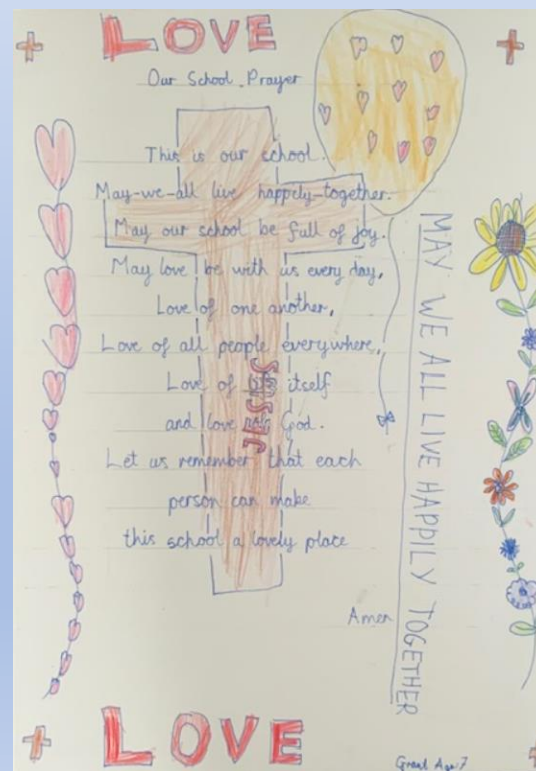 LOVE
Our School Prayer
This is our school.
May we all live happely together.
May our school be full of joy.
May love be with us every day,
Love of one another,
Love of all people everywhere,
Love of life itself
and love of God.
Let us remember that each
person can make
this school a lovely place
Amen
JESUS
MAY WE ALL LIVE HAPPILY TOGETHER
LOVE
Grant Age 7